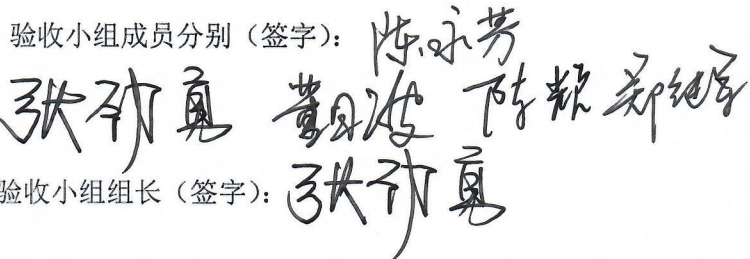 验收小组成员分别（签字）：陈永芳
张劲勇 黄国波 陈毅 郑继军
验收小组组长（签字）：张劲勇